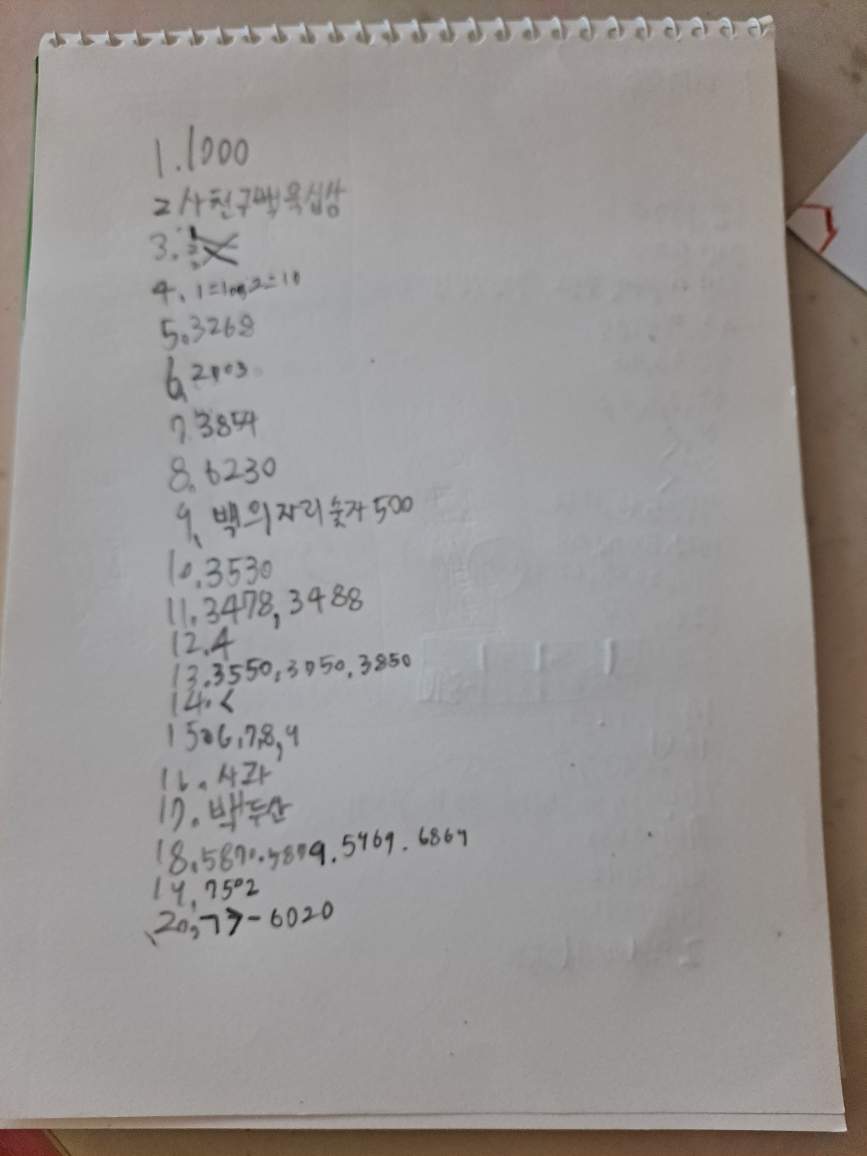 1.1000
2 사천구백육십삼
3.
4. 1=100, 2=10
5.3268
6.2703
7.3854
8.6230
9. 백의자리숫자500
10.3530
11.3478,3488
12.4
13.3550,3750.3850
14.<
15.6,7,8,9
16.사과
17.백두산
18.5870.5879.5969.6869
19.7502
20,ㄱ>-6020